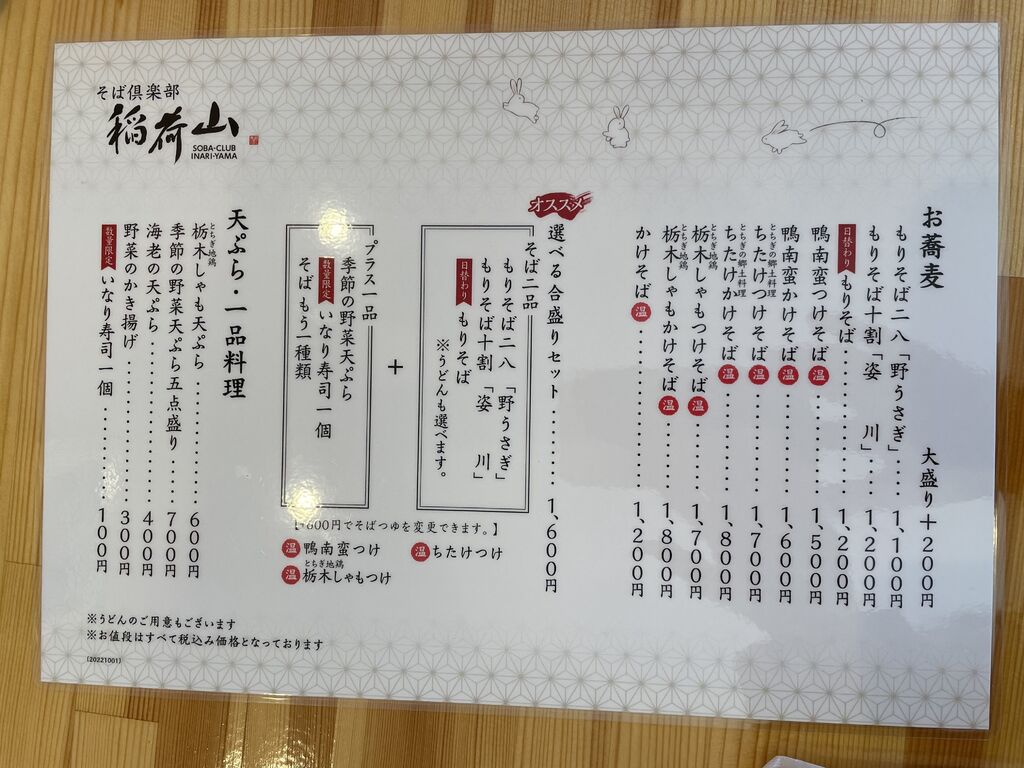 そば倶楽部
稲荷山
SOBA-CLUB
INARI-YAMA
お蕎麦 大盛り+200円
もりそば二八「野うさぎ」 1、100円
もりそば十割「姿 川」 1、200円
日替わり もりそば 1、200円
鴨南蛮つけそば 温 1、500円
鴨南蛮かけそば 温 1、600円
とちぎの郷土料理
ちたけつけそば 温 1、700円
とちぎの郷土料理
ちたけかけそば 温 1、800円
とちぎ地鶏
栃木しゃもつけそば 温 1、700円
とちぎ地鶏
栃木しゃもかけそば 温 1、800円
かけそば 温 1、200円
オススメ
選べる合盛りセット 1、600円
そば二品
もりそば二八「野うさぎ」
もりそば十割「姿 川」
日替わり もりそば
※うどんも選べます。
+
プラス一品
季節の野菜天ぷら
数量限定 いなり寿司一個
そば もう一種類
【+600円でそばつゆを変更できます。】
温 鴨南蛮つけ 温 ちたけつけ
とちぎ地鶏
温 栃木しゃもつけ
天ぷら・一品料理
とちぎ地鶏
栃木しゃも天ぷら 600円
季節の野菜天ぷら五点盛り 700円
海老の天ぷら 400円
野菜のかき揚げ 300円
数量限定 いなり寿司一個 100円
※うどんのご用意もございます
※お値段はすべて税込み価格となっております
(20221001)